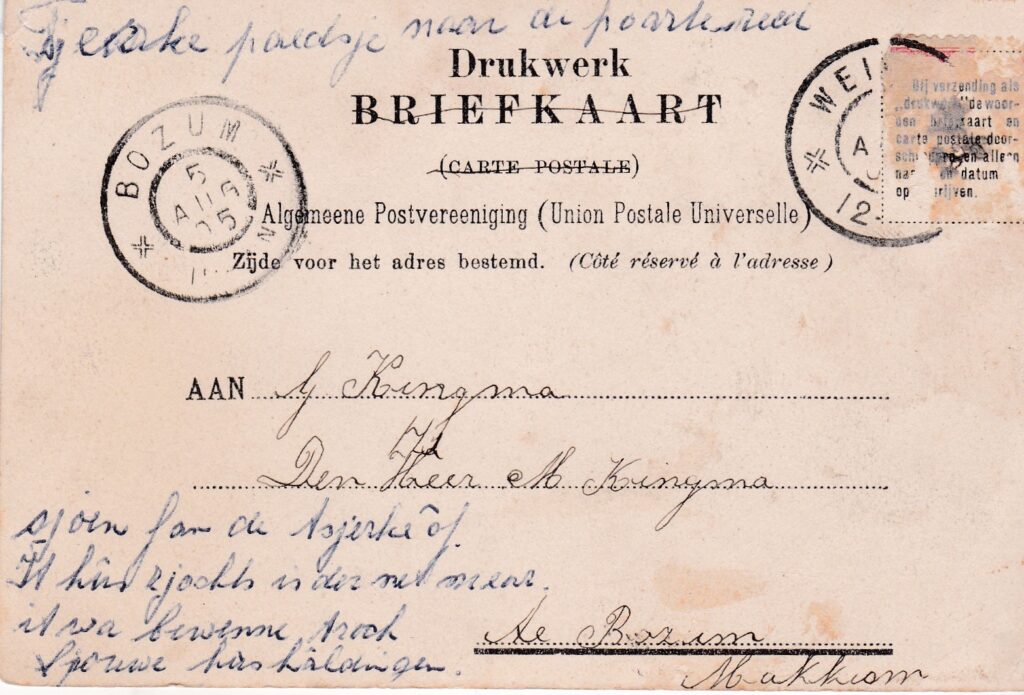 Tsjerke paedsje naar de poarte reed
Drukwerk
BRIEFKAART
(CARTE POSTALE)
Algemeene Postvereeniging (Union Postale Universelle)
Zijde voor het adres bestemd. (Côté réservé à l'adresse)
BOZUM
5
AUG
05
WEI
A
12
Bij verzending als
„drukwerk" de woor-
den briefkaart en
carte postale door-
schrappen en alleen
naam en datum
op
AAN G Kingma
Den Heer M Kingma
sjoen fan de tsjerke ôf.
It hûs rjochts is der net mear.
it wa bewenne troch
húshâldingen.
Te Bozum
Makkum